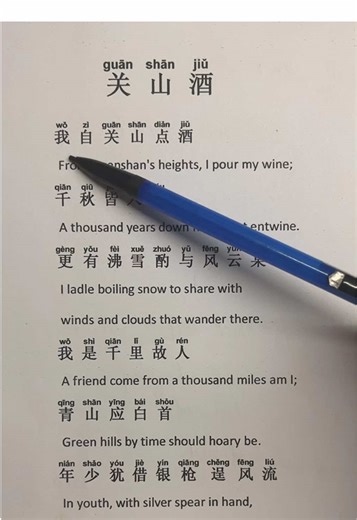 guān shān jiǔ
关山酒
wǒ zì guān shān diǎn jiǔ
我自关山点酒
Fro anshan's heights, I pour my wine;
qiān qiū
千秋皆
A thousand years down entwine.
gèng yǒu fèi xuě zhuó yǔ fēng
更有沸雪酌与风云
I ladle boiling snow to share with
winds and clouds that wander there.
wǒ shì qiān lǐ gù rén
我是千里故人
A friend come from a thousand miles am I;
qīng shān yīng bái shǒu
青山应白首
Green hills by time should hoary be.
nián shǎo yóu jiè yín qiāng chěng fēng liú
年少犹借银枪逞风流
In youth, with silver spear in hand,